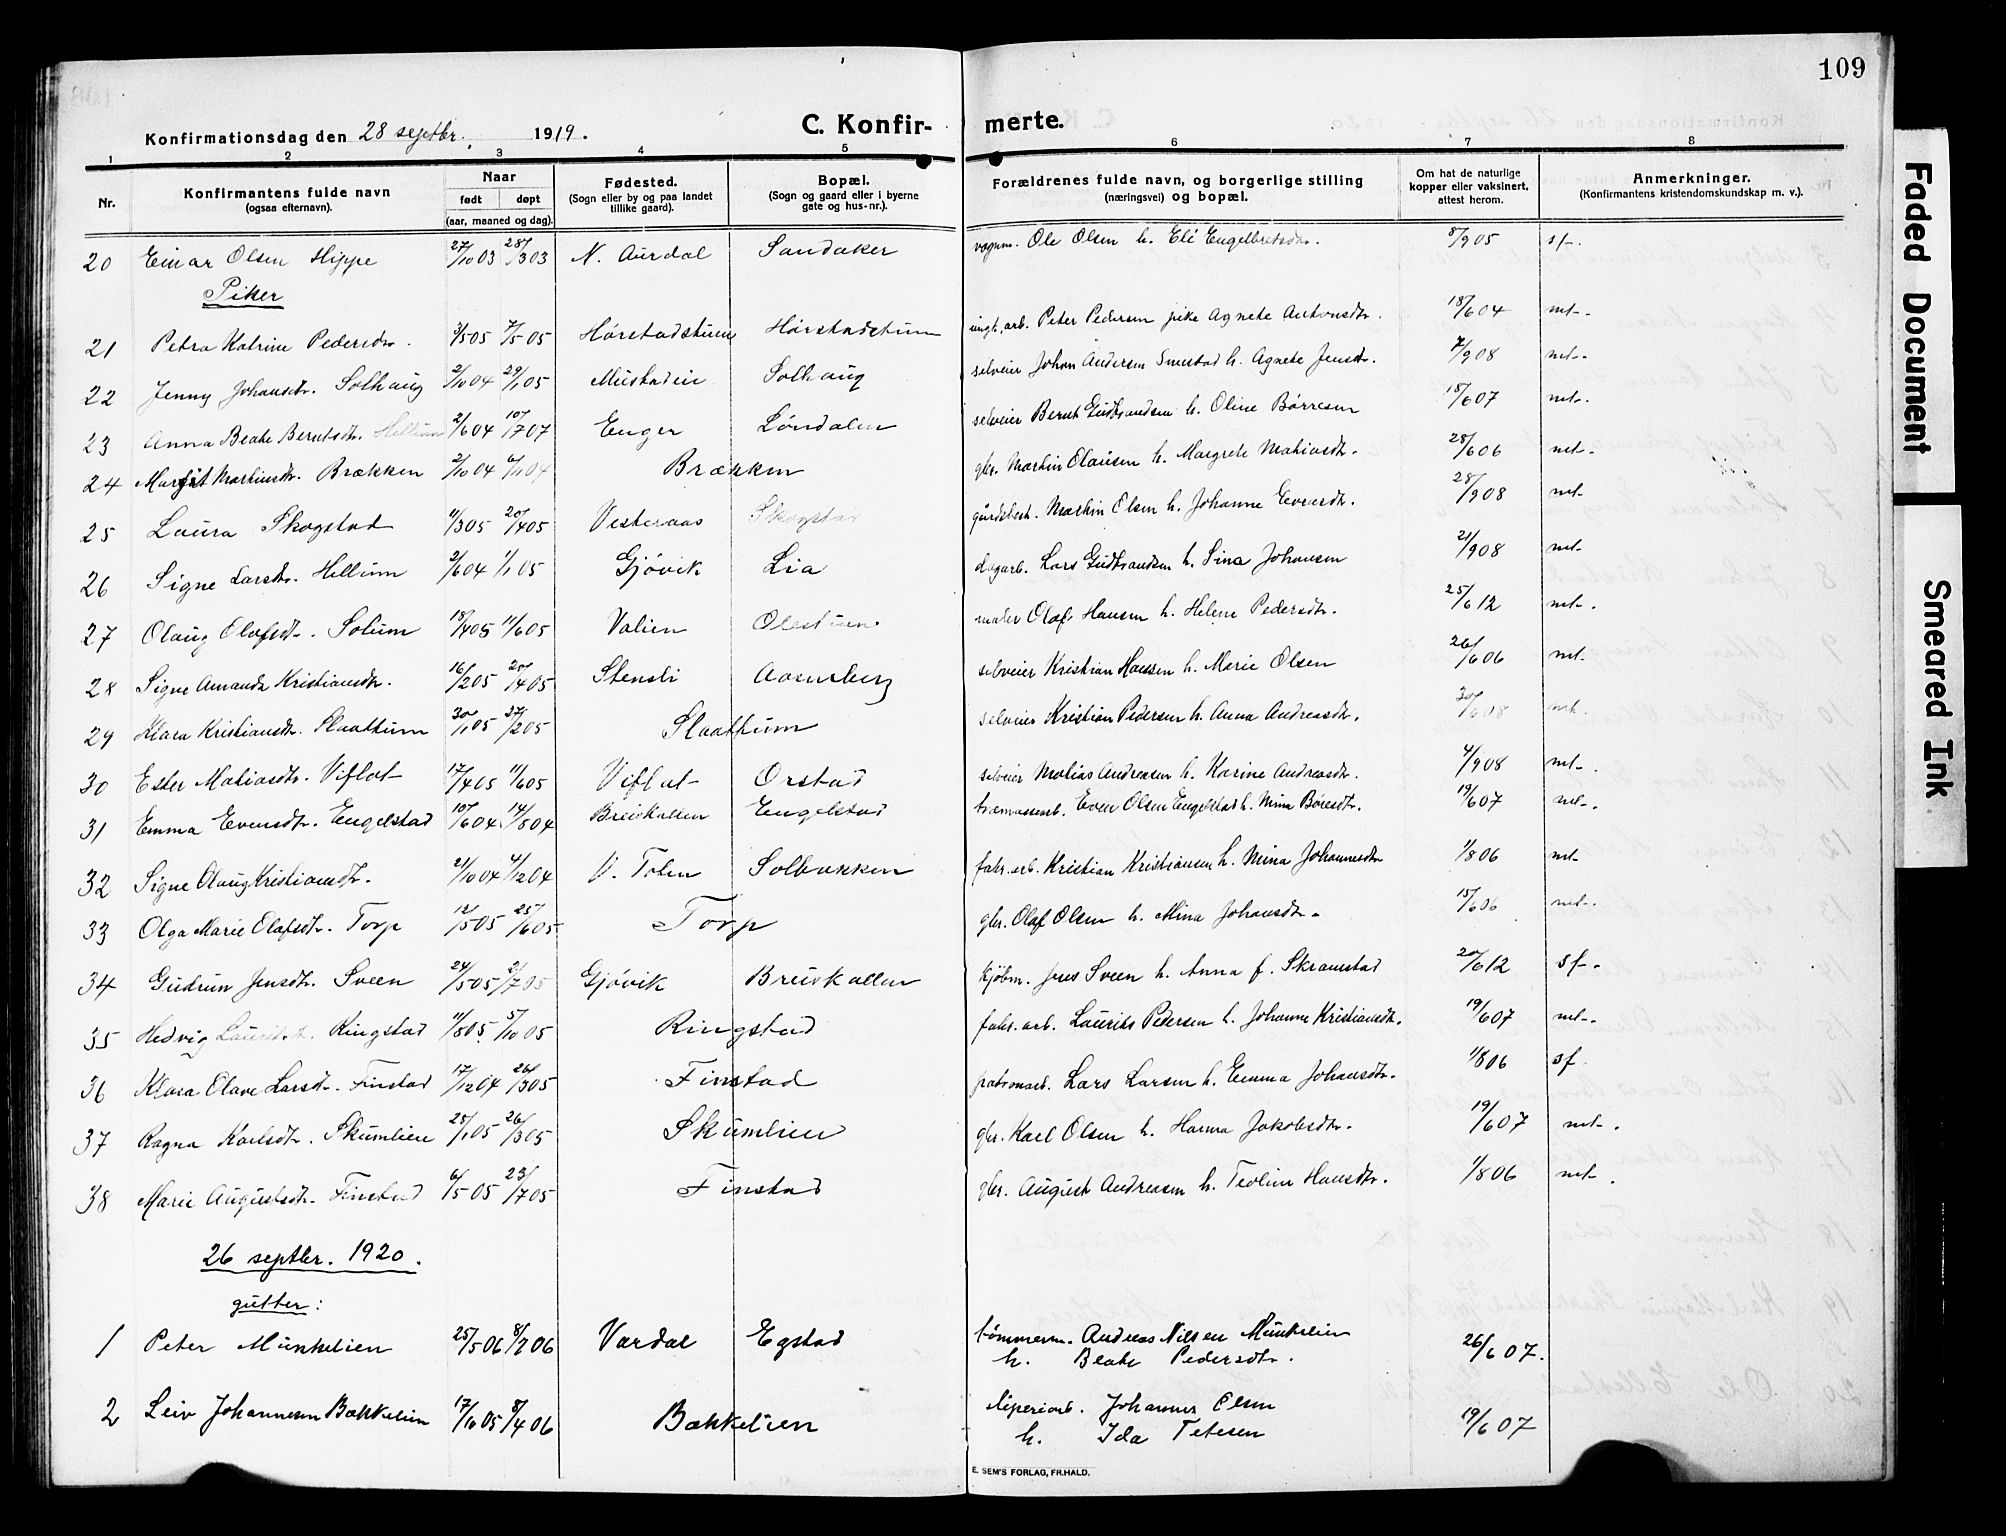 109
Konfirmationsdag den 28 septbr. 1919.
C. Konfirmerte.
1 2 3 4 5 6 7 8
Nr.
Konfirmantens fulde navn (ogsaa efternavn).
Naar født døpt (aar, maaned og dag).
Fødested. (Sogn eller by og paa landet tillike gaard).
Bopæl. (Sogn og gaard eller i byerne gate og hus-nr.).
Forældrenes fulde navn, og borgerlige stilling (næringsvei) og bopæl.
Om hat de naturlige kopper eller vaksinert, attest herom.
Anmerkninger. (Konfirmantens kristendomskundskap m. v.).
20 Einar Olsen Hippe 27/10 03 28/3 03 N. Aurdal Sandaker vognm. Ole Olsen h. Eli Engelbretsdtr. 8/9 05 sf.
Piker
21 Petra Katrine Pedersdtr. 3/5 05 7/5 05 Hørstadstuen Hørstadstuen ungk. arb. Peter Pedersen pike Agnete Antonsdtr. 18/6 04 mt.
22 Jenny Johansdtr. Solhaug 2/10 04 29/1 05 Mustadeie Solhaug selveier Johan Andersen Smestad h. Agnete Jensdtr. 7/9 08 mt.
23 Anna Beate Berntsdtr. Hellium 2/6 04 10/7 07 Enger Løndalen selveier Bernt Gudbrandsen h. Oline Børresen 18/6 07 mt.
24 Margit Martinsdtr. Brækken 2/10 04 6/11 04 Brækken gbr. Martin Olausen h. Margrete Mathiasdtr. 28/6 06 mt.
25 Laura Skogstad 4/3 05 20/4 05 Vesteraas Skogstad gårdsbest. Martin Olsen h. Johanne Evensdtr. 28/9 08 mt.
26 Signe Larsdtr. Hellum 2/6 04 1/1 05 Gjøvik Lia dagarb. Lars Gudbrandsen h. Sina Johansen 21/9 08 mt.
27 Olaug Olafsdtr. Solum 18/4 05 11/6 05 Valien Olestuen maler Olaf Hansen h. Helene Pedersdtr. 25/6 12 mt.
28 Signe Amanda Kristiansdtr. 16/2 05 20/4 05 Stensli Aasensberg selveier Kristian Hansen h. Marie Olsen 26/6 06 mt.
29 Klara Kristiansdtr. Slaathum 30/1 05 27/2 05 Slaathum selveier Kristian Pedersen h. Anna Andreasdtr. 30/6 08 mt.
30 Ester Mathiasdtr. Viflat 17/4 05 11/6 05 Viflat Orstad selveier Matias Andreasen h. Karine Andreasdtr. 4/9 08 mt.
31 Emma Evensdtr. Engelstad 10/6 04 14/8 04 Breiskallen Engelstad træmassearb. Even Olsen Engelstad h. Mina Børesdtr. 19/6 07 mt.
32 Signe Olaug Kristiansdtr. 21/10 04 4/12 04 V. Toten Solbakken fabr. arb. Kristian Kristiansen h. Mina Johannesdtr 1/8 06 mt
33 Olga Marie Olafsdtr. Torp 12/5 05 25/6 05 Torp gbr. Olaf Olsen h. Mina Johansdtr. 15/6 06 mt.
34 Gudrun Jensdtr. Sveen 24/5 05 2/7 05 Gjøvik Breiskallen kjøbm. Jens Sveen h. Anna f. Skramstad 20/6 12 sf.
35 Hedvig Ringstad 11/8 05 5/10 05 Ringstad fabr. arb. Laurits Pedersen h. Johanne Kristiansdtr. 19/6 07 mt.
36 Klara Olave Larsdtr. Finstad 17/12 04 26/3 05 Finstad patronarb. Lars Larsen h. Emma Johansdtr. 1/8 06 sf.
37 Ragna Karlsdtr. Skumlien 25/1 05 26/3 05 Skumlien gbr. Karl Olsen h. Hanna Jakobsdtr. 19/6 07 mt.
38 Marie Augustsdtr. Finstad 6/5 05 23/7 05 Finstad gbr. August Andreasen h. Teoline Hansdtr. 1/8 06 mt.
26 septbr. 1920.
gutter:
1 Peter Munkelien 25/5 06 8/7 06 Vardal Egstad tømmerm. Andreas Nilsen Munkelien 26/6 07.
h. Beate Pedersdtr.
2 Leiv Johannesen Bakkelien 17/10 05 8/4 06 Bakkelien sliperiarb. Johannes Olsen 19/6 07
h. Ida Petersen
E. SEM'S FORLAG, FR.HALD.
Faded Document
Smeared Ink